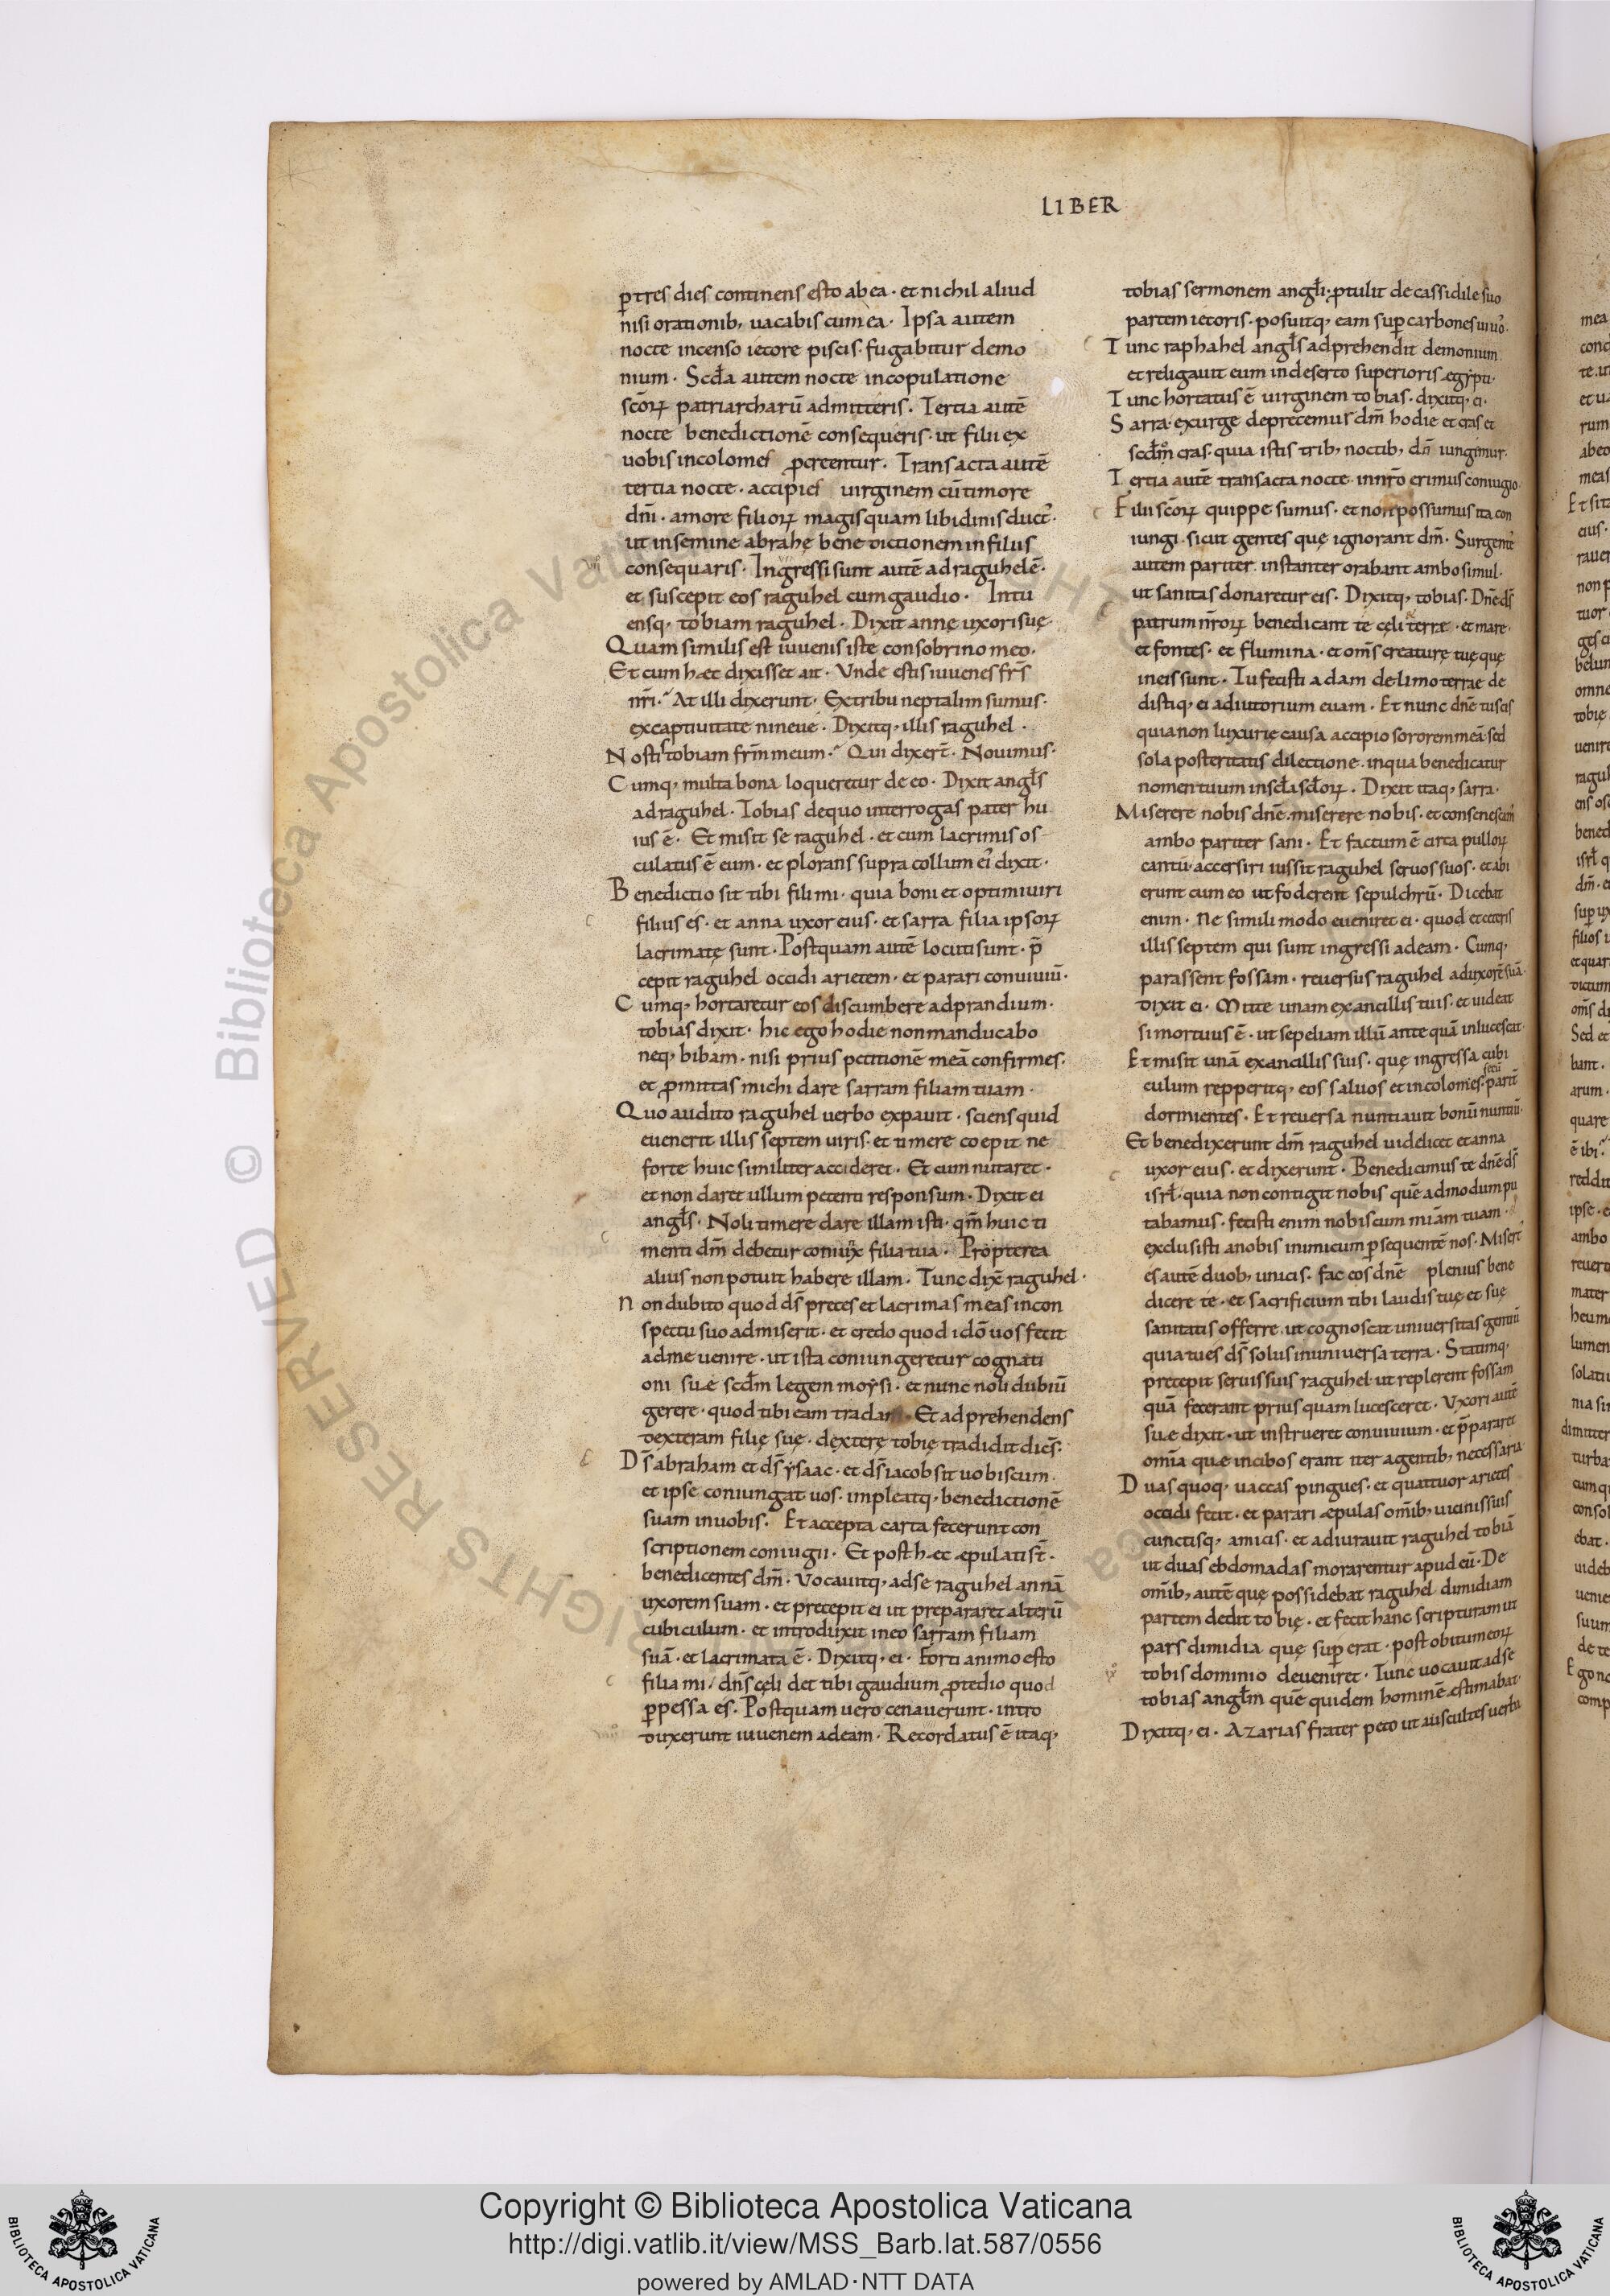 LIBER
ꝑ tres dies continens esto ab ea · et nichil aliud
nisi orationib; uacabis cum ea · Ipsa autem
nocte incenso iecore piscis · fugabitur demo
nium · Scd̄a autem nocte in copulatione
scōꝝ patriarcharū admitteris · Tertia autē
nocte benedictionē consequeris · ut filii ex
uobis incolomes ꝓcreentur · Transacta autē
tertia nocte · accipies uirginem cū timore
dn̄i · amore filioꝝ magis quam libidinis duct᾽ ·
ut in semine abrahę benedictionem in filiis
consequaris · Ingressi sunt autē ad raguhelē ·
et suscepit eos raguhel cum gaudio · Intu
ensq; tobiam raguhel · Dixit annę uxori suę
Quam similis est iuuenis iste consobrino meo ·
Et cum hæc dixisset ait · Unde estis iuuenes fr̄s
nr̄i · At illi dixerunt · Ex tribu neptalim sumus ·
ex captiuitate nineue · Dixitq; illis raguhel ·
Nostis tobiam fr̄m meum · Qui dixer̄t · Nouimus ·
Cumq; multa bona loqueretur de eo · Dixit angł̄s
ad raguhel · Tobias de quo interrogas pater hu
ius ē · Et misit se raguhel · et cum lacrimis os
culatus ē eum · et plorans supra collum ei᾽ dixit ·
Benedictio sit tibi fili mi · quia boni et optimi uiri
filius es · et anna uxor eius · et sarra filia ipsoꝝ
lacrimatę sunt · Postquam autē locuti sunt · p̄
cepit raguhel occidi arietem · et parari conuiuiū ·
Cumq; hortaretur eos discumbere ad prandium ·
tobias dixit · hic ego hodie non manducabo
neq; bibam · nisi prius petitionē meā confirmes ·
et ꝓmittas michi dare sarram filiam tuam ·
Quo audito raguhel uerbo expauit · sciens quid
euenerit illis septem uiris · et timere coepit ne
forte huic similiter accideret · Et cum nutaret ·
et non daret ullum petenti responsum · Dixit ei
angł̄s · Noli timere dare illam isti · qm̄ huic ti
menti dm̄ debetur coniux filia tua · Propterea
alius non potuit habere illam · Tunc dix̄ raguhel ·
Non dubito quod ds̄ preces et lacrimas meas in con
spectu suo admiserit · et credo quod idō uos fecit
ad me uenire · ut ista coniungeretur cognati
oni suæ scd̄m legem moẏsi · et nunc noli dubiū
gerere · quod tibi eam tradam · Et adprehendens
dexteram filię suę · dexterę tobię tradidit dicēs:
Ds̄ abraham et ds̄ ẏsaac · et ds̄ iacob sit uobiscum ·
et ipse coniungat uos · impleatq; benedictionē
suam in uobis · Et accepta carta fecerunt con
scriptionem coniugii · Et post hæc æpulati st̄ ·
benedicentes dm̄ · Vocauitq; ad se raguhel annā
uxorem suam · et precepit ei ut prepararet alterū
cubiculum · et introduxit in eo sarram filiam
suā · et lacrimata ē · Dixitq; ei · Forti animo esto
filia mi / dn̄s cęli det tibi gaudium ꝓ tedio quod
ꝑpessa es · Postquam uero cenauerunt · intro
duxerunt iuuenem ad eam · Recordatus ē itaq;
tobias sermonem angł̄i · ꝓtulit de cassidile suo
partem iecoris · posuitq; eam suꝑ carbones uiuo᾽ ·
Tunc raphahel angł̄s adprehendit demonium
et religauit eum in deserto superioris ægẏpti ·
Tunc hortatus ē uirginem tobias · dixitq; ei ·
Sarra · exurge deprecemur dm̄ hodie et cras et
scd̄m cras · quia istis trib; noctib; dō iungimur ·
Tertia autē transacta nocte in nr̄o erimus coniugio
Filii scōꝝ quippe sumus · et non possumus ita con
iungi · sicut gentes quę ignorant dm̄ · Surgent᾽
autem pariter instanter orabant ambo simul ·
ut sanitas donaretur eis · Dixitq; tobias · Dn̄e ds̄
patrum nr̄oꝝ benedicant te cęli terræ · et mare ·
et fontes · et flumina · et om̄s creaturę tuę quę
in eis sunt · Tu fecisti adam de limo terrae de
distiq; ei adiutorium euam · Et nunc dn̄e tu scis
quia non luxurię causa accipio sororem meā · sed
sola posteritatis dilectione · in qua benedicatur
nomen tuum in scł̄a scł̄oꝝ · Dixit itaq; sarra ·
Miserere nobis dn̄e · miserere nobis · et consenescam᾽
ambo pariter sani · Et factum ē circa pulloꝝ
cantū · accersiri iussit raguhel seruos suos · et abi
erunt cum eo ut foderent sepulchrū · Dicebat
enim · ne simili modo eueniret ei · quod et ceteris
illis septem qui sunt ingressi ad eam · Cumq;
parassent fossam · reuersus raguhel ad uxorē suā ·
dixit ei · Mitte unam ex ancillis tuis · et uideat
si mortuus ē · ut sepeliam illū ante quā inlucescat ·
Et misit unā ex ancillis suis · quę ingressa cubi
culum repperitq; eos saluos et incolomes · secū parit̄
dormientes · Et reuersa nuntiauit bonū nuntiū ·
Et benedixerunt dm̄ raguhel uidelicet et anna
uxor eius · et dixerunt · Benedicimus te dn̄e ds̄
isrł̄ · quia non contigit nobis quē admodum pu
tabamus · fecisti enim nobiscum miā̄m tuam ·
exclusisti a nobis inimicum ꝑsequentē nos · Misert᾽
es autē duob; unicis · fac eos dn̄e plenius bene
dicere te · et sacrificium tibi laudis tuę et suę
sanitatis offerre · ut cognoscat uniuersitas gentiū
quia tu es ds̄ solus in uniuersa terra · Statimq;
precepit seruis suis raguhel · ut replerent fossam
quā fecerant prius quam lucesceret · Uxori autē
suæ dixit · ut instrueret conuiuium · et p̄pararet
omīa quæ in cibos erant iter agentib; necessaria
Duas quoq; uaccas pingues · et quattuor arietes
occidi fecit · et parari æpulas om̄ib; uicinis suis
cunctisq; amicis · et adiurauit raguhel tobiā
ut duas ebdomadas morarentur apud eū · De
om̄ib; autē quę possidebat raguhel dimidiam
partem dedit tobię · et fecit hanc scripturam ut
pars dimidia quę suꝑerat · post obitum eoꝝ
tobis dominio deueniret · Tunc uocauit ad se
tobias angł̄m quē quidem hominē æstimabat ·
Dixitq; ei · Azarias frater peto ut auscultes uerba
Copyright © Biblioteca Apostolica Vaticana
http://digi.vatlib.it/view/MSS_Barb.lat.587/0556
powered by AMLAD·NTT DATA